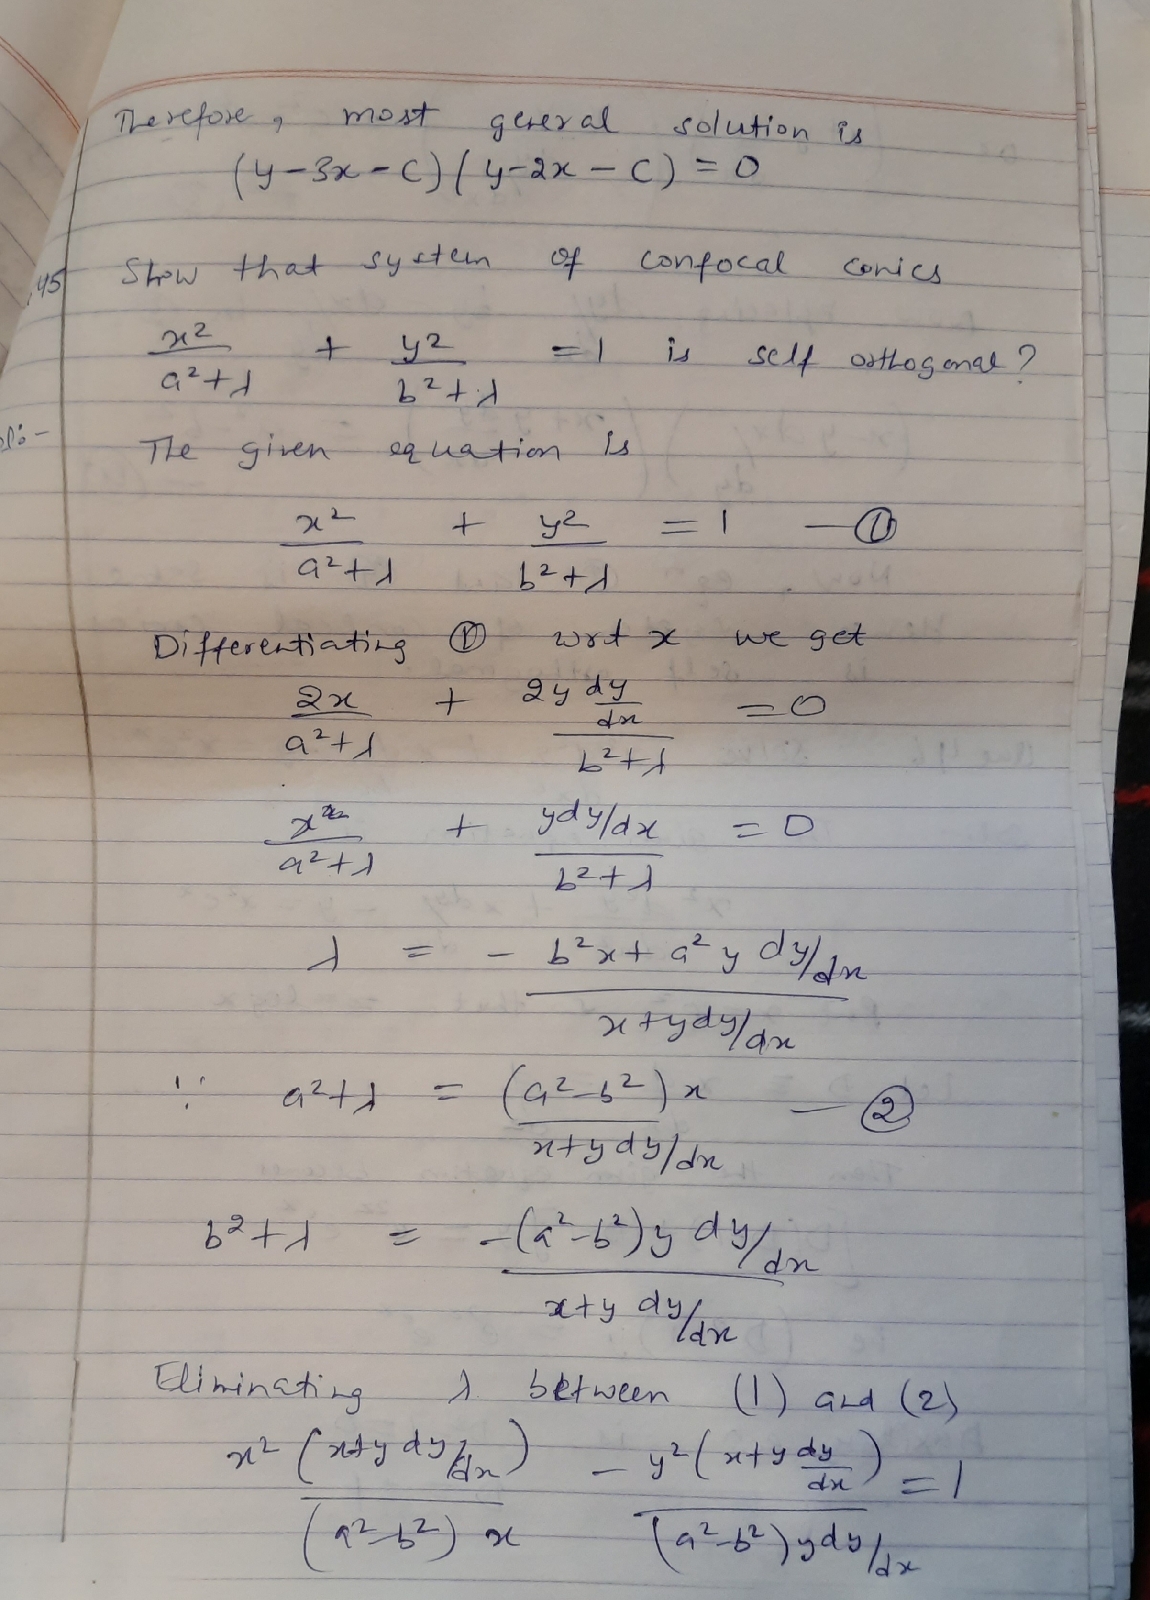 Therefore, most general solution is
(y-3x-c)(y-2x-c) = 0
45 Show that system of confocal conics
x²/(a²+λ) + y²/(b²+λ) = 1 is self orthogonal?
The given equation is
x²/(a²+λ) + y²/(b²+λ) = 1 — ①
Differentiating ① wrt x we get
2x/(a²+λ) + (2y dy/dx)/(b²+λ) = 0
x/(a²+λ) + (y dy/dx)/(b²+λ) = 0
λ = - (b²x + a² y dy/dx)/(x+y dy/dx)
∵ a²+λ = (a²-b²)x/(x+y dy/dx) — ②
b²+λ = -(a²-b²)y dy/dx/(x+y dy/dx)
Eliminating λ between (1) and (2)
x²(x+y dy/dx)/((a²-b²)x) - y²(x+y dy/dx)/((a²-b²)y dy/dx) = 1